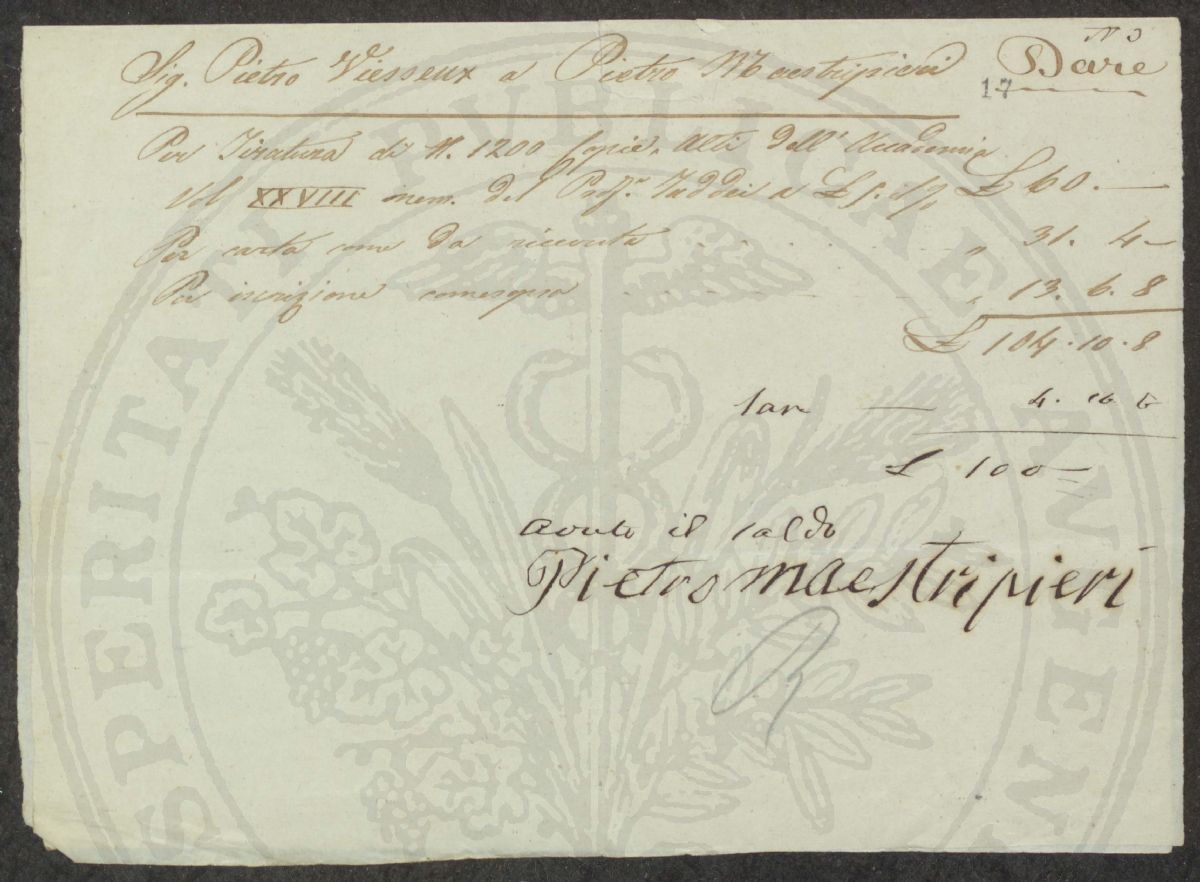 N 3
Sig. Pietro Viesseux a Pietro Maestripieri Dare
17
Per Tiratura di N. 1200 Copie, Atti dell' Accademia
Vol XXVIII mem. del Prof.r Taddei a £ £ 60. —
Per carta come da ricevuta . . . . . . — „ 31. 4 —
Per iscrizione comesopra . . . . . . — „ 13. 6. 8
£ 104. 10. 8
— 4.
£ 100 —
avuto il saldo
Pietro maestripieri
PROSPERITATI PUBLICAE AUGENDAE